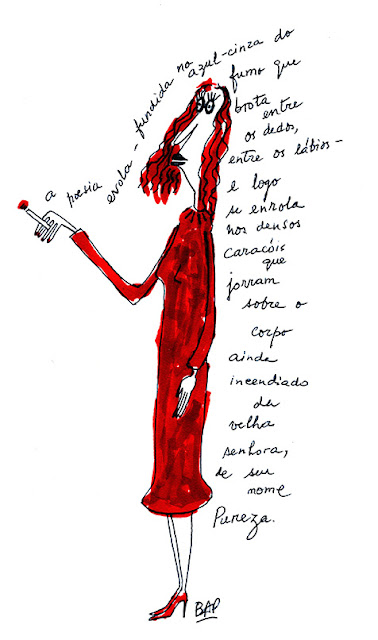 a poesia evola-fundida no azul-cinza do
fumo que
brota entre
os dedos,
entre os lábios-
e logo
se enrola
nos densos
caracóis
que
jorram
sobre o
corpo
ainda
incendiado
da
velha
senhora,
de seu
nome
Pureza.
BAP